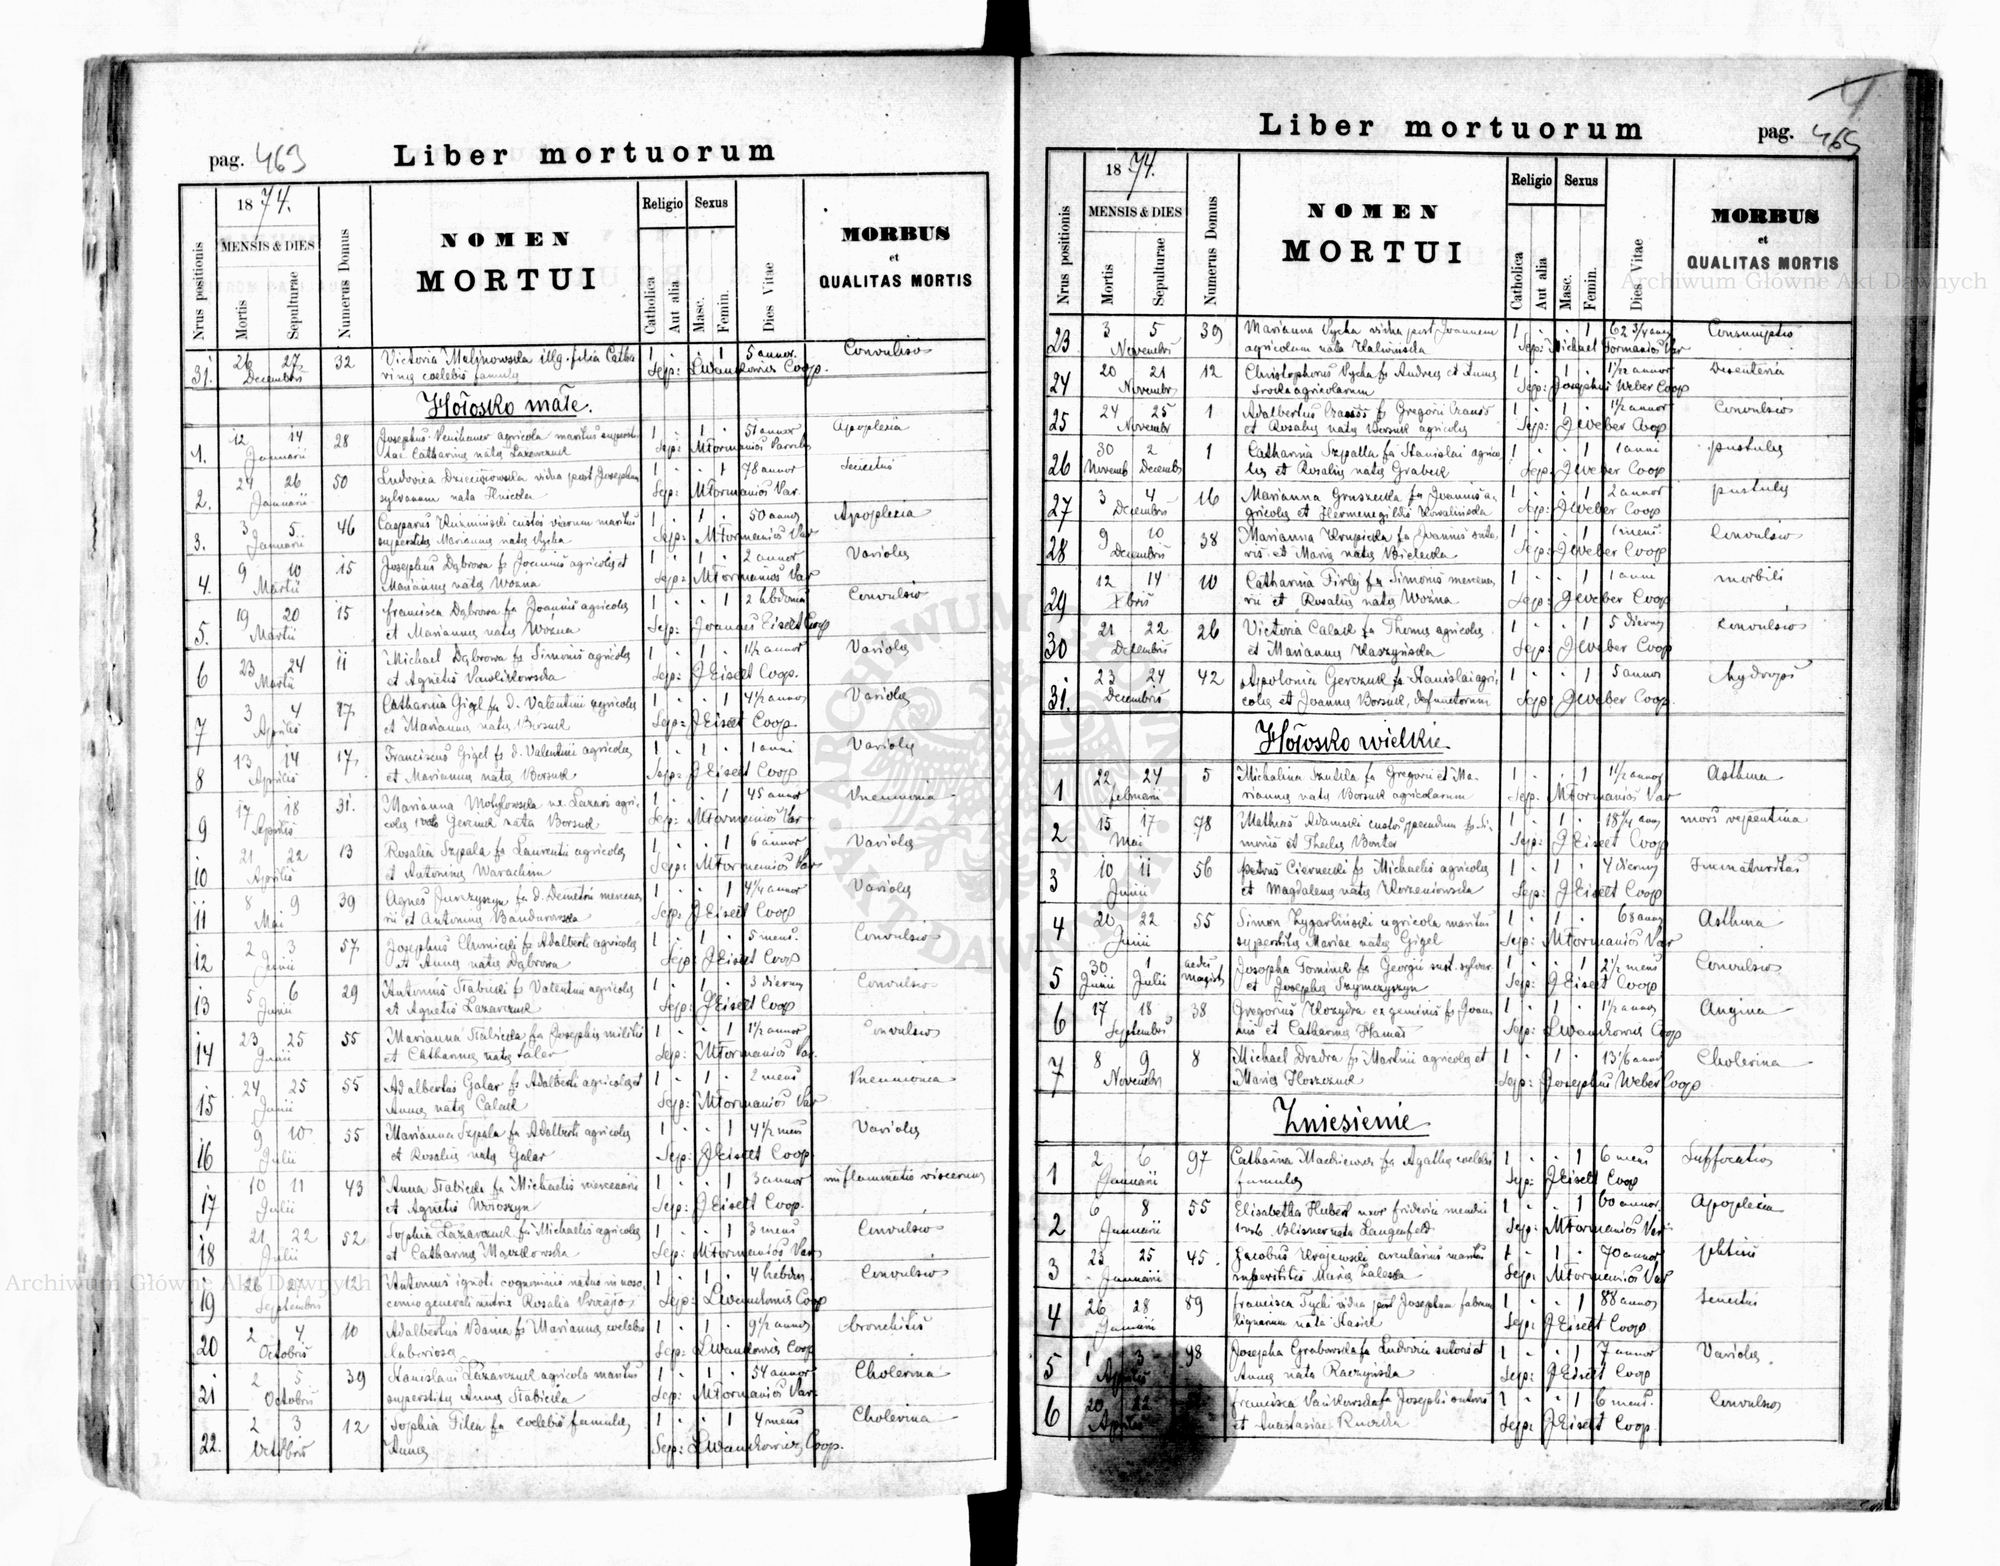 pag. 463
Liber mortuorum
1874.
MENSIS & DIES
Nrus positionis
Mortis
Sepulturae
Numerus Domus
NOMEN
MORTUI
Religio
Catholica
Aut alia
Sexus
Masc.
Femin.
Dies Vitae
MORBUS
et
QUALITAS MORTIS
31. 26 27 32 Victoria Malinowska illg. filia Catha 1 . . 1 5 annor. Convulsio
Decembris rinae coelebis famulae Sep: LIwankowicz Coop.
Hołosko małe.
1. 12 14 28 Josephus agricola maritus supersti 1 . 1 . 51 annor Apoplexia
Januarii tae Catharinae natae Lazarczuk Sep: MFormaniós Paroch
2. 24 26 50 Ludovica vidua post Josephum 1 . . 1 78 annor Senectus
Januarii sylvanum nata Sep: MFormaniós Par.
3. 3 5 46 Casparus Kuźminski custos viarum maritus 1 . 1 . 50 annor Apoplexia
Januarii superstitis Mariannae natae Pycha Sep: MFormaniós Par
4. 9 10 15 Josephus Dąbrowa fs Joannis agricolae et 1 . 1 . 2 annor Variolae
Martii Mariannae natae Wozna Sep: MFormaniós Par
5. 19 20 15 Francisca Dąbrowa fa Joannis agricolae 1 . . 1 2 hbdomas Convulsio
Martii et Mariannae natae Wozna Sep: Joannes Eiselt Coop
6 23 24 11 Michael Dąbrowa fs Simonis agricolae 1 . 1 . 1½ annor Variolae
Martii et Agnetis Pawlikowska Sep: J Eiselt Coop.
7 3 4 17 Catharina Gigel fa d. Valentini agricolae 1 . . 1 4½ annor Variolae
Aprilis et Mariannae natae Borsuk Sep: J Eiselt Coop.
8 13 14 17. Franciscus Gigel fs d. Valentini agricolae 1 . 1 . 1 anni Variolae
Aprilis et Mariannae natae Borsuk Sep: J Eiselt Coop
9 17 18 31. Marianna Motylowska ux. Lazari agri- 1 . . 1 45 annor Pneumonia
Aprilis colae Gerczuk nata Borsuk Sep: MFormaniós Par
10 21 22 13 Rosalia Szpala fa Laurentii agricolae 1 . . 1 6 annor Variolae
Aprilis et Antoninae Sep: MFormaniós Par
11 8 9 39 Agnes Jurczyszyn fa d. Demetrii mercena 1 . . 1 4¼ annor Variolae
Mai rii et Antoninae Bandurowska Sep: J Eiselt Coop
12 2 3 57. Josephus Chmicki fs Adalberti agricolae 1 . 1 . 5 mens. Convulsio
Junii et Annae natae Dąbrowa Sep: J Eiselt Coop
13 5 6 29 Antonius Stabicki fs Valentini agricolae 1 . 1 . 3 dierum Convulsio
Junii et Agnetis Lazarczuk Sep: J Eiselt Coop
14 23 25 55 Marianna Stabicka fa Josephi militis 1 . . 1 1½ annor Convulsio
Junii et Catharinae natae Sep: MFormaniós Par.
15 24 25 55 Adalbertus Galar fs Adalberti agricolae et 1 . 1 . 2 mens Pneumonia
Junii Annae natae Calark Sep: MFormaniós Par
16 9 10 55 Marianna Szpala fa Adalberti agricolae 1 . . 1 4½ mens Variolae
Julii et Rosaliae natae Galar Sep: J Eiselt Coop.
17 10 11 43 Anna Stabicka fa Michaelis mercenarii 1 . . 1 3 annor inflammatio viscerum
Julii et Agnetis Wołoszyn Sep: J Eiselt Coop.
18 21 22 52 Sophia Lazarczuk fa Michaelis agricolae 1 . . 1 3 mens Convulsio
Julii et Catharinae Maczkowska Sep: MFormaniós Par
19 26 27 12 Antonius ignoti cognominis natus in noso 1 . 1 . 4 hebdom. Convulsio
Septembris comio generali nutrix Rosalia Sep: LIwankowic Coop
20 2 4 10 Adalbertus Bania fs Mariannae coelebis 1 . 1 . 9½ annor bronchitis
Octobris laboriosae Sep: LIwankowicz Coop
21 2 5 39 Stanislaus Lazarczuk agricola maritus 1 . 1 . 54 annor Cholerina
Octobris superstitis Annae Stabicka Sep: MFormaniós Par.
22. 2 3 12 Sophia Pilch fa coelebis famulae 1 . . 1 4 mens Cholerina
Octobris Annae Sep: LIwankowicz Coop.
Liber mortuorum
pag. 465
1874.
MENSIS & DIES
Nrus positionis
Mortis
Sepulturae
Numerus Domus
NOMEN
MORTUI
Religio
Catholica
Aut alia
Sexus
Masc.
Femin.
Dies Vitae
MORBUS
et
QUALITAS MORTIS
23 3 5 39 Marianna Pycha vidua post Joannem 1 . . 1 62 3/4 annor Consumptio
Novembris agricolam nata Kaliwinska Sep: Michael Formaniós Par
24 20 21 12 Christophorus Pycha fs Andreae et Annae 1 . 1 . 1 1/12 annor Desenteria
Novembr Sroka agricolarum Sep: Josephus Weber Coop
25 24 25 1 Adalbertus Crauss fs Gregorii Crauss 1 . 1 . 1½ annor Convulsio
Novembr et Rosaliae natae Borsuk agricolae Sep: JWeber Coop
26 30 2 1 Catharina Szpalla fa Stanislai agrico 1 . . 1 1 anni pustulae
Novemb Decembr lae et Rosaliae natae Grabek Sep: JWeber Coop
27 3 4 16 Marianna Gruszecka fa Joannis a- 1 . . 1 2 annor pustulae
Decembris gricolae et Hermenegildis Kowalinska Sep: JWeber Coop
28 9 10 38 Marianna Krupicka fa Joannis suto 1 . . 1 1 mens. Convulsio
Decembris ris et Mariae natae Bielecka Sep: JWeber Coop
29 12 14 10 Catharina Pirlej fa Simonis mercena 1 . . 1 1 anni morbili
Xbris rii et Rosaliae natae Woźna Sep: JWeber Coop
30 21 22 26 Victoria Calack fa Thomae agricolae 1 . . 1 5 dierum Convulsio
Decembris et Mariannae Kaszyńska Sep: JWeber Coop
31. 23 24 42 Apolonia Gerczuk fa Stanislai agri 1 . . 1 5 annor hydrops
Decembris colae et Joannae Borsuk, defunctorum Sep: JWeber Coop.
Hołosko wielkie
1 22 24 5 Michalina Szuskla fa Gregorii et Ma- 1 . . 1 1½ annor Asthma
februarii riannae natae Borsuk agricolarum Sep. MFormaniós Par
2 15 17 78 Mathias Adamski custos pecudum fs Si- 1 . 1 . 18¼ ann mors repentina
Mai monis et Theclae Bonter Sep: J Eiselt Coop
3 10 11 56 petrus Ciernecki fs Michaelis agricolae 1 . 1 . 4 dierum Immaturitas
Junii et Magdalenae natae Korzeniowska Sep: J Eiselt Coop
4 20 22 55 Simon Zygarlinski agricola maritus 1 . 1 . 68 annor Asthma
Junii superstitis Mariae natae Gigel Sep: MFormaniós Par
5 30 1 aedes Josepha Tominek fa Georgii cust. sylvar 1 . . 1 2½ mens Convulsio
Junii Julii magistr et Josephae Szymczyszyn Sep: J Eiselt Coop
6 17 18 38 Gregorius Kozydra ex geminis fs Joan 1 . 1 . 1½ annor Angina
Septembris nis et Catharinae Hamas Sep: LIwankowic Coop
7 8 9 8 Michael Dradra fs Martini agricolae et 1 . 1 . 13 1/6 annor Cholerina
Novembr Mariae Hoszczuk Sep: Josephus Weber Coop
Zniesienie
1 2 6 97 Catharina Mackiewicz fa Agathae coelebis 1 . . 1 6 mens Suffocatio
Januarii famulae Sep: J Eiselt Coop
2 6 8 55 Elisabetha Huber uxor friderici mendici 1 . . 1 60 annor. Apoplexia
Januarii Blisner nata Langenfeld Sep: MFormaniós Par
3 23 25 45. Jacobus Krajewski arcularius maritus 1 . 1 . 70 annor phtisis
Januarii superstitis Mariae Zaleska Sep: MFormaniós Par
4 26 28 89 Francisca Tycki vidua post Josephum fabrum 1 . . 1 88 annor Senectus
Januarii lignarum nata Sep: J Eiselt Coop
5 1 3 98 Josepha Grabowska fa Ludovici sutoris et 1 . . 1 7 annor Variolae.
Aprilis Annae nata Raczyńska Sep: J Eiselt Coop
6 20 22 Francisca Pańkowska fa Josephi sutoris 1 . . 1 6 mens. Convulsio
Aprilis et Anastasiae Sep: J Eiselt Coop.
Archiwum Główne Akt Dawnych
Archiwum Główne Akt Dawnych
ARCHIWUM GŁÓWNE AKT DAWNYCH